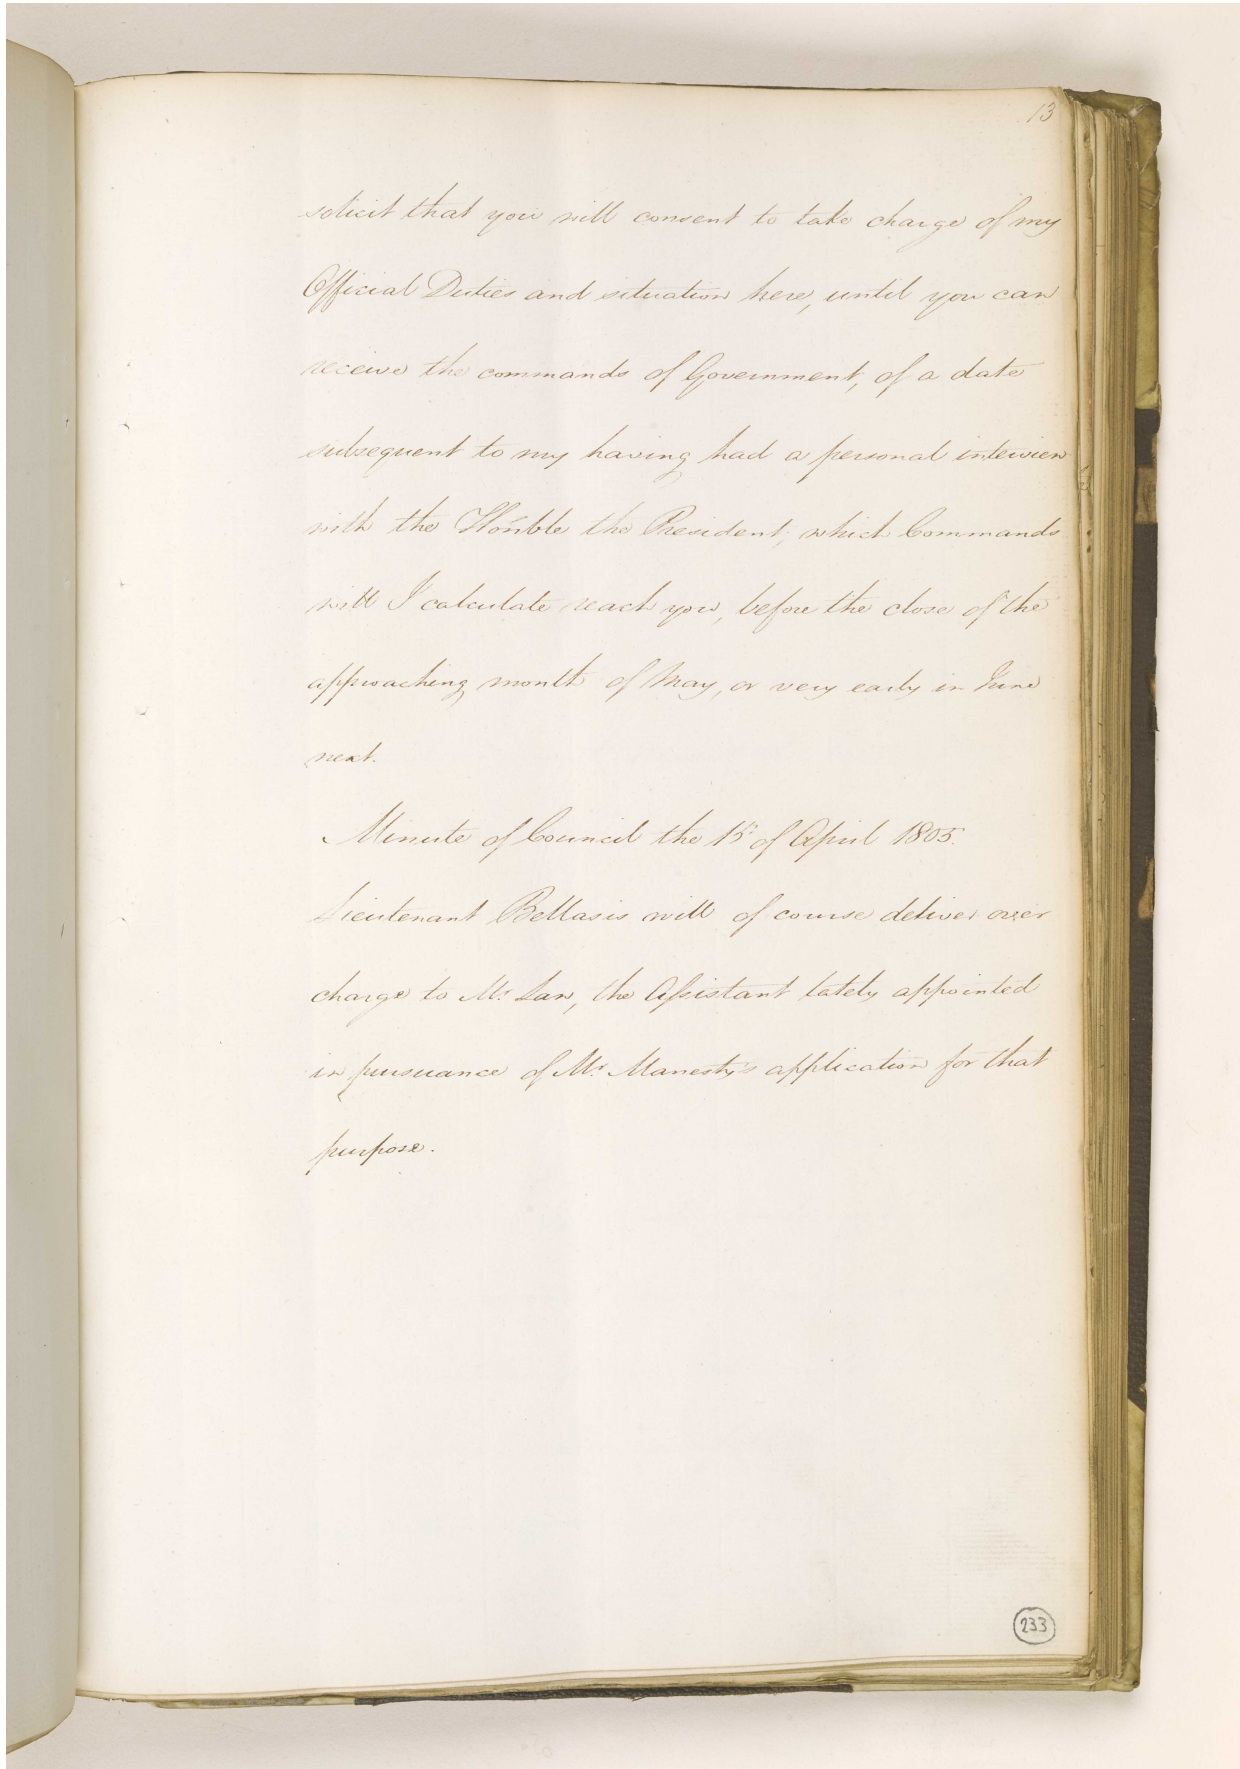 13
solicit that you will consent to take charge of my
Official Duties and situation here, until you can
receive the commands of Government, of a date
subsequent to my having had a personal interview
with the Honble the President, which Commands
will I calculate reach you, before the close of the
approaching month of May, or very early in June
next.
Minute of Council the 15th of April 1805.
Lieutenant Bellasis will of course deliver over
charge to Mr Law, the Assistant lately appointed
in pursuance of Mr Manesty's application for that
purpose.
233